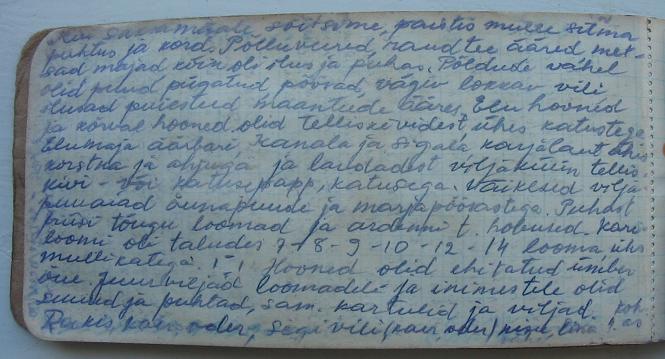 Kui saksamaale sõitsime, paistis mulle silma
puhtus ja kord. Põlluveered, raudtee ääred met-
sad majad kõik oli ilus ja puhas. Põldude vahel
olid pügatud põõsad, vägiv lokkav vili
ilusad puiesteed maanteede ääres. Elu hooned
ja kõrval hooned olid telliskividest ühes katustega
Elumaja äärbari kanala ja sigala karjalaut ühes
korstna ja ahjuga ja laudadest viljaküün tellis-
kivi - või katusepapp, katusega. Väikesed vilja
puuaiad õunapuude ja marjapõõsastega. Puhast
tõugu loomad ja ardenni t. hobused. Kari-
loomi oli taludes 7-8-9-10-12-14 looma ühes
mullikatega. 1-1 Hooned olid ehitatud ümber
õue. Juurviljad loomadele ja inimestele olid
suured ja puhtad, sam. kartulid ja viljad.
Rukis, kaer, oder, segi vili (kaer, oder) nisu, lina